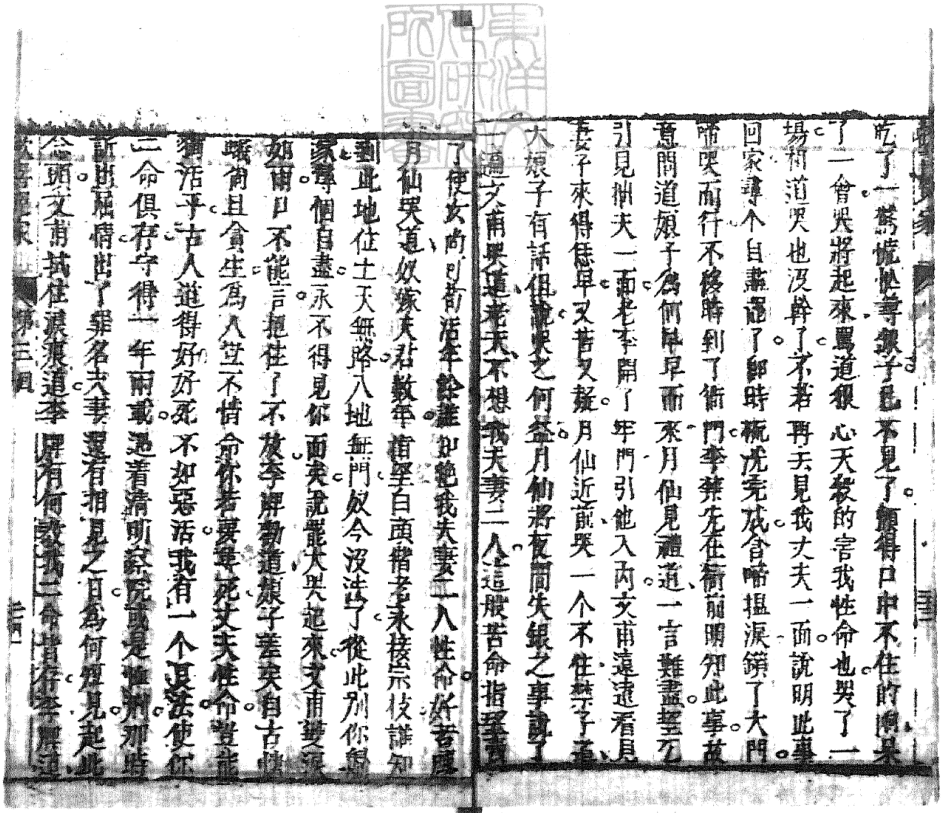 吃了一驚慌忙尋銀子已不見了顫得口中不住的叫呆
了一會哭將起來罵道狠心天殺的害我性命也哭了一
場想道哭也沒幹了不若再去見我丈夫一面說明此事
回家尋个自盡罷了即時梳洗完成含啼揾淚鎖了大門
啼哭而行不移時到了衙門李禁先在衙前明知此事故
意問道娘子為何早早而來月仙見禮道一言難盡望乞
引見拙夫一面老李開了牢門引他入內文甫遠遠看見
妻子來得恁早又苦又疑月仙近前哭一个不住禁子道
大娘子有話但說哭之何益月仙將夜間失銀之事說了
一遍文甫哭道老天不想我夫妻二人這般苦命指望賣
了使女尚可苟活年餘誰知絕我夫妻二人性命好苦
月仙哭道奴嫁夫君數年指望白頭偕老永接宗枝誰知
到此地位上天無路入地無門奴今沒法了從此別你歸
家尋個自盡永不得見你面矣說罷大哭起來文甫雙淚
如雨口不能言抱住了不放李牌勸道娘子差矣自古螻
蟻尚且貪生為人豈不惜命你若要尋死丈夫性命豈能
獨活乎古人道得好好死不如惡活我有一个見法使你
二命俱存守得一年兩載遇着清明察院或是恤刑那時
訴出屈情出了罪名夫妻還有相見之日為何短見起此
念頭文甫拭住淚痕道李牌有何救我二命皆存李牌道
第三回